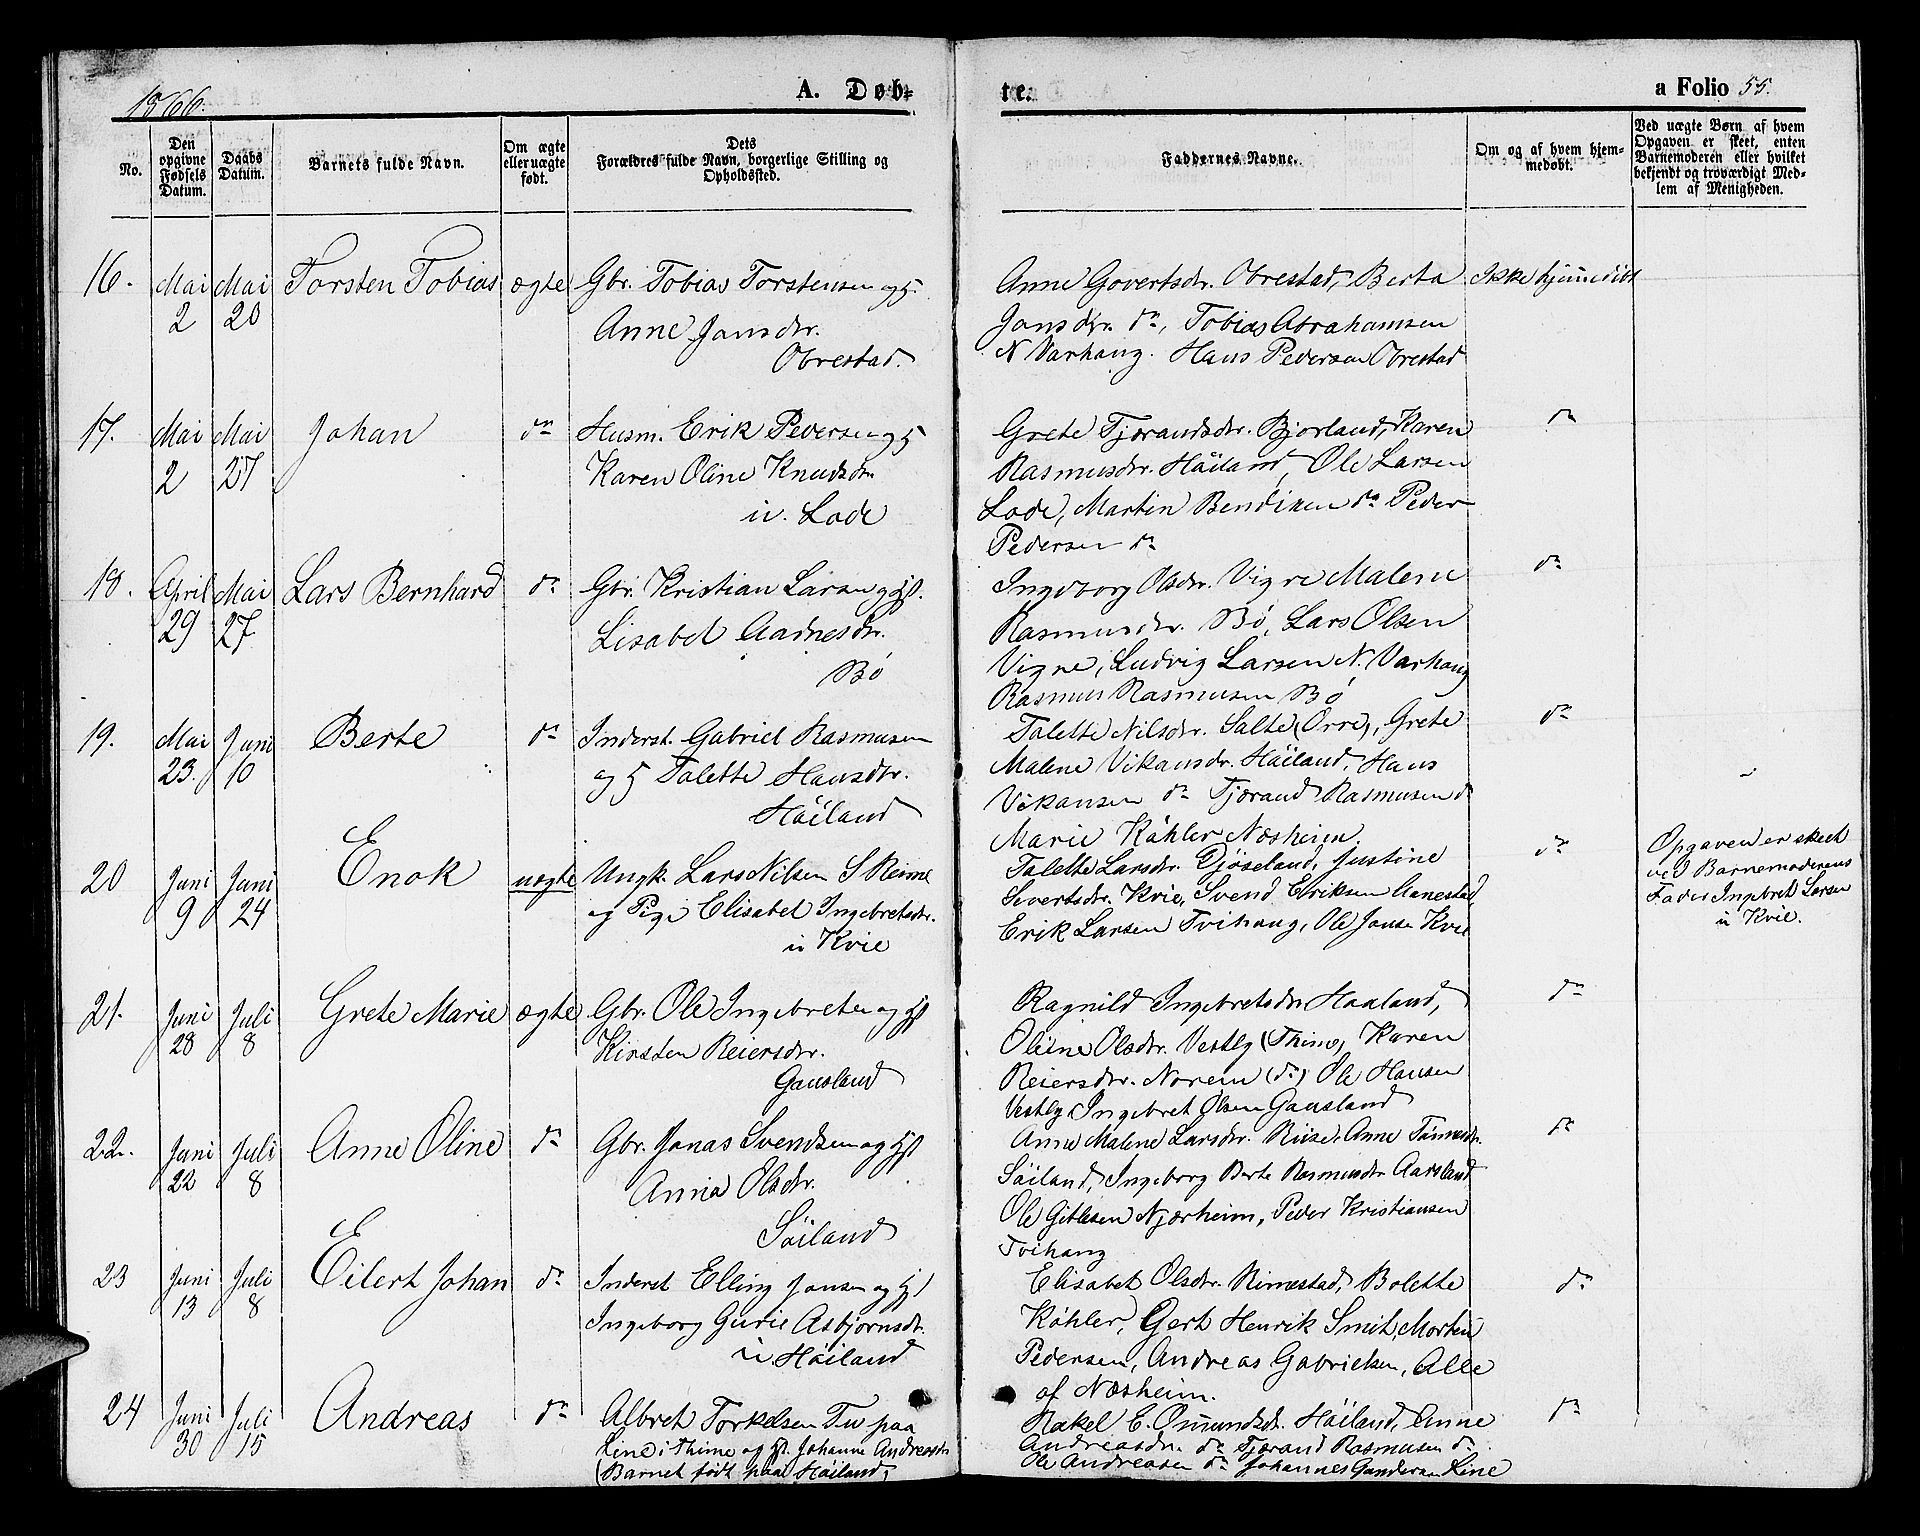 1866.
A. Døb-
te.
a Folio 55.
No.
Den opgivne Fødsels Datum.
Daabs Datum.
Barnets fulde Navn.
Om ægte eller uægte født.
Dets Forældres fulde Navn, borgerlige Stilling og Opholdssted.
Faddernes Navne.
Om og af hvem hjemmedøbt.
Ved uægte Børn af hvem Opgaven er skeet, enten Barnemoderen eller hvilket bekjendt og troværdigt Medlem af Menigheden.
16. Mai 2 Mai 20 Torsten Tobias ægte
Gbr. Tobias Torstensen og H
Anne Jansdtr.
Obrestad.
Anne Govertsdr. Obrestad, Berta
Jansdtr. do, Tobias Abrahamsen
N Varhaug. Hans Pedersen Obrestad
Ikke hjemmedøbt
17. Mai 2 Mai 27 Johan do
Husm. Erik Pedersen og H
Karen Oline Knudsdtr.
i Lode
Grete Tjørandsdtr. Bjorland, Karen
Rasmusdtr. Høiland, Ole Larsen
Lode, Martin Bendixen do Peder
Pedersen do
do
18. April 29 Mai 27 Lars Bernhard do
Gbr. Kristian Larsen og Hst.
Lisabet Aadnesdtr.
Bø
Ingeborg Olsdtr. Vigre Malene
Rasmusdtr. Bø, Lars Olsen
Vigre, Ludvig Larsen N. Varhaug
Rasmus Rasmusen Bø
do
19. Mai 23. Juni 10 Berte do
Inderst. Gabriel Rasmusen
og H Talette Hansdtr.
Høiland
Talette Nilsdtr. Salte (Orre), Grete
Malene Vikansdr. Høiland, Hans
Vikansen do Tjørand Rasmusen do
Marie Køhler Næsheim.
do
20 Juni 9 Juni 24 Enok uægte
Ungk. Lars Nilsen S Reime
og Pige Elisabet Ingebretsdtr.
i Kvie
Talette Larsdtr. Djøseland, Justine
Severtsdtr. Kvie, Svend Eriksen Aanestad,
Erik Larsen Tvihaug, Ole Jansen Kvie
do
Opgaven er skeet
ved Barnemoderens
Fader Ingebret Larsen
i Kvie.
21. Juni 28 Juli 8 Grete Marie ægte
Gbr. Ole Ingebretsen og Hst
Kirsten Reiersdtr.
Gausland
Ragnild Ingebretsdtr Haaland,
Oline Olsdtr. Vestly (Thime), Karen
Reiersdtr. Norem (do) Ole Hansen
Vestly, Ingebret Olsen Gausland
do
22. Juni 22 Juli 8 Anne Oline do
Gbr. Jonas Svendsen og Hst
Anna Olsdtr.
Søiland
Anne Malene Larsdtr. Riise, Anne Tønnesdtr.
Søiland, Ingeborg Berte Rasmusdtr Aarsland
Ole Gitlesen Njærheim, Peder Kristiansen
Tvihaug
do
23 Juni 13 Juli 8 Eilert Johan do
Inderst Elling Jansen og Hst
Ingeborg Gurie Asbjørnsdtr.
i Høiland
Elisabet Olsdtr. Rimestad, Bolette
Køhler, Gert Henrik Smit, Morten
Pedersen, Andreas Gabrielsen, Alle
af Næsheim.
do
24 Juni 30 Juli 15 Andreas do
Albret Torkelsen Tu paa
Line i Thime og Hst. Johanne Andreasdtr
(Barnet født paa Høiland)
Rakel E. Omundsdtr. Høiland, Anne
Andreasdtr. do Tjørand Rasmusen do
Ole Andreasen do Johannes Gundersen Line
do